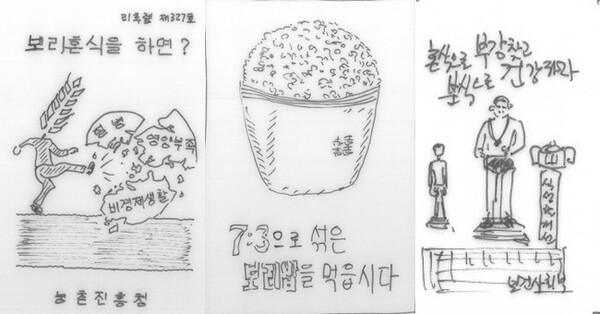 리후렛 제327호
보리혼식을 하면?
질병
영양부족
비경제생활
농촌진흥청
7:3으로 섞은
보리밥을 먹읍시다
혼식으로 부강찾고
분식으로 건강찾자
식생활개선
보건사회부